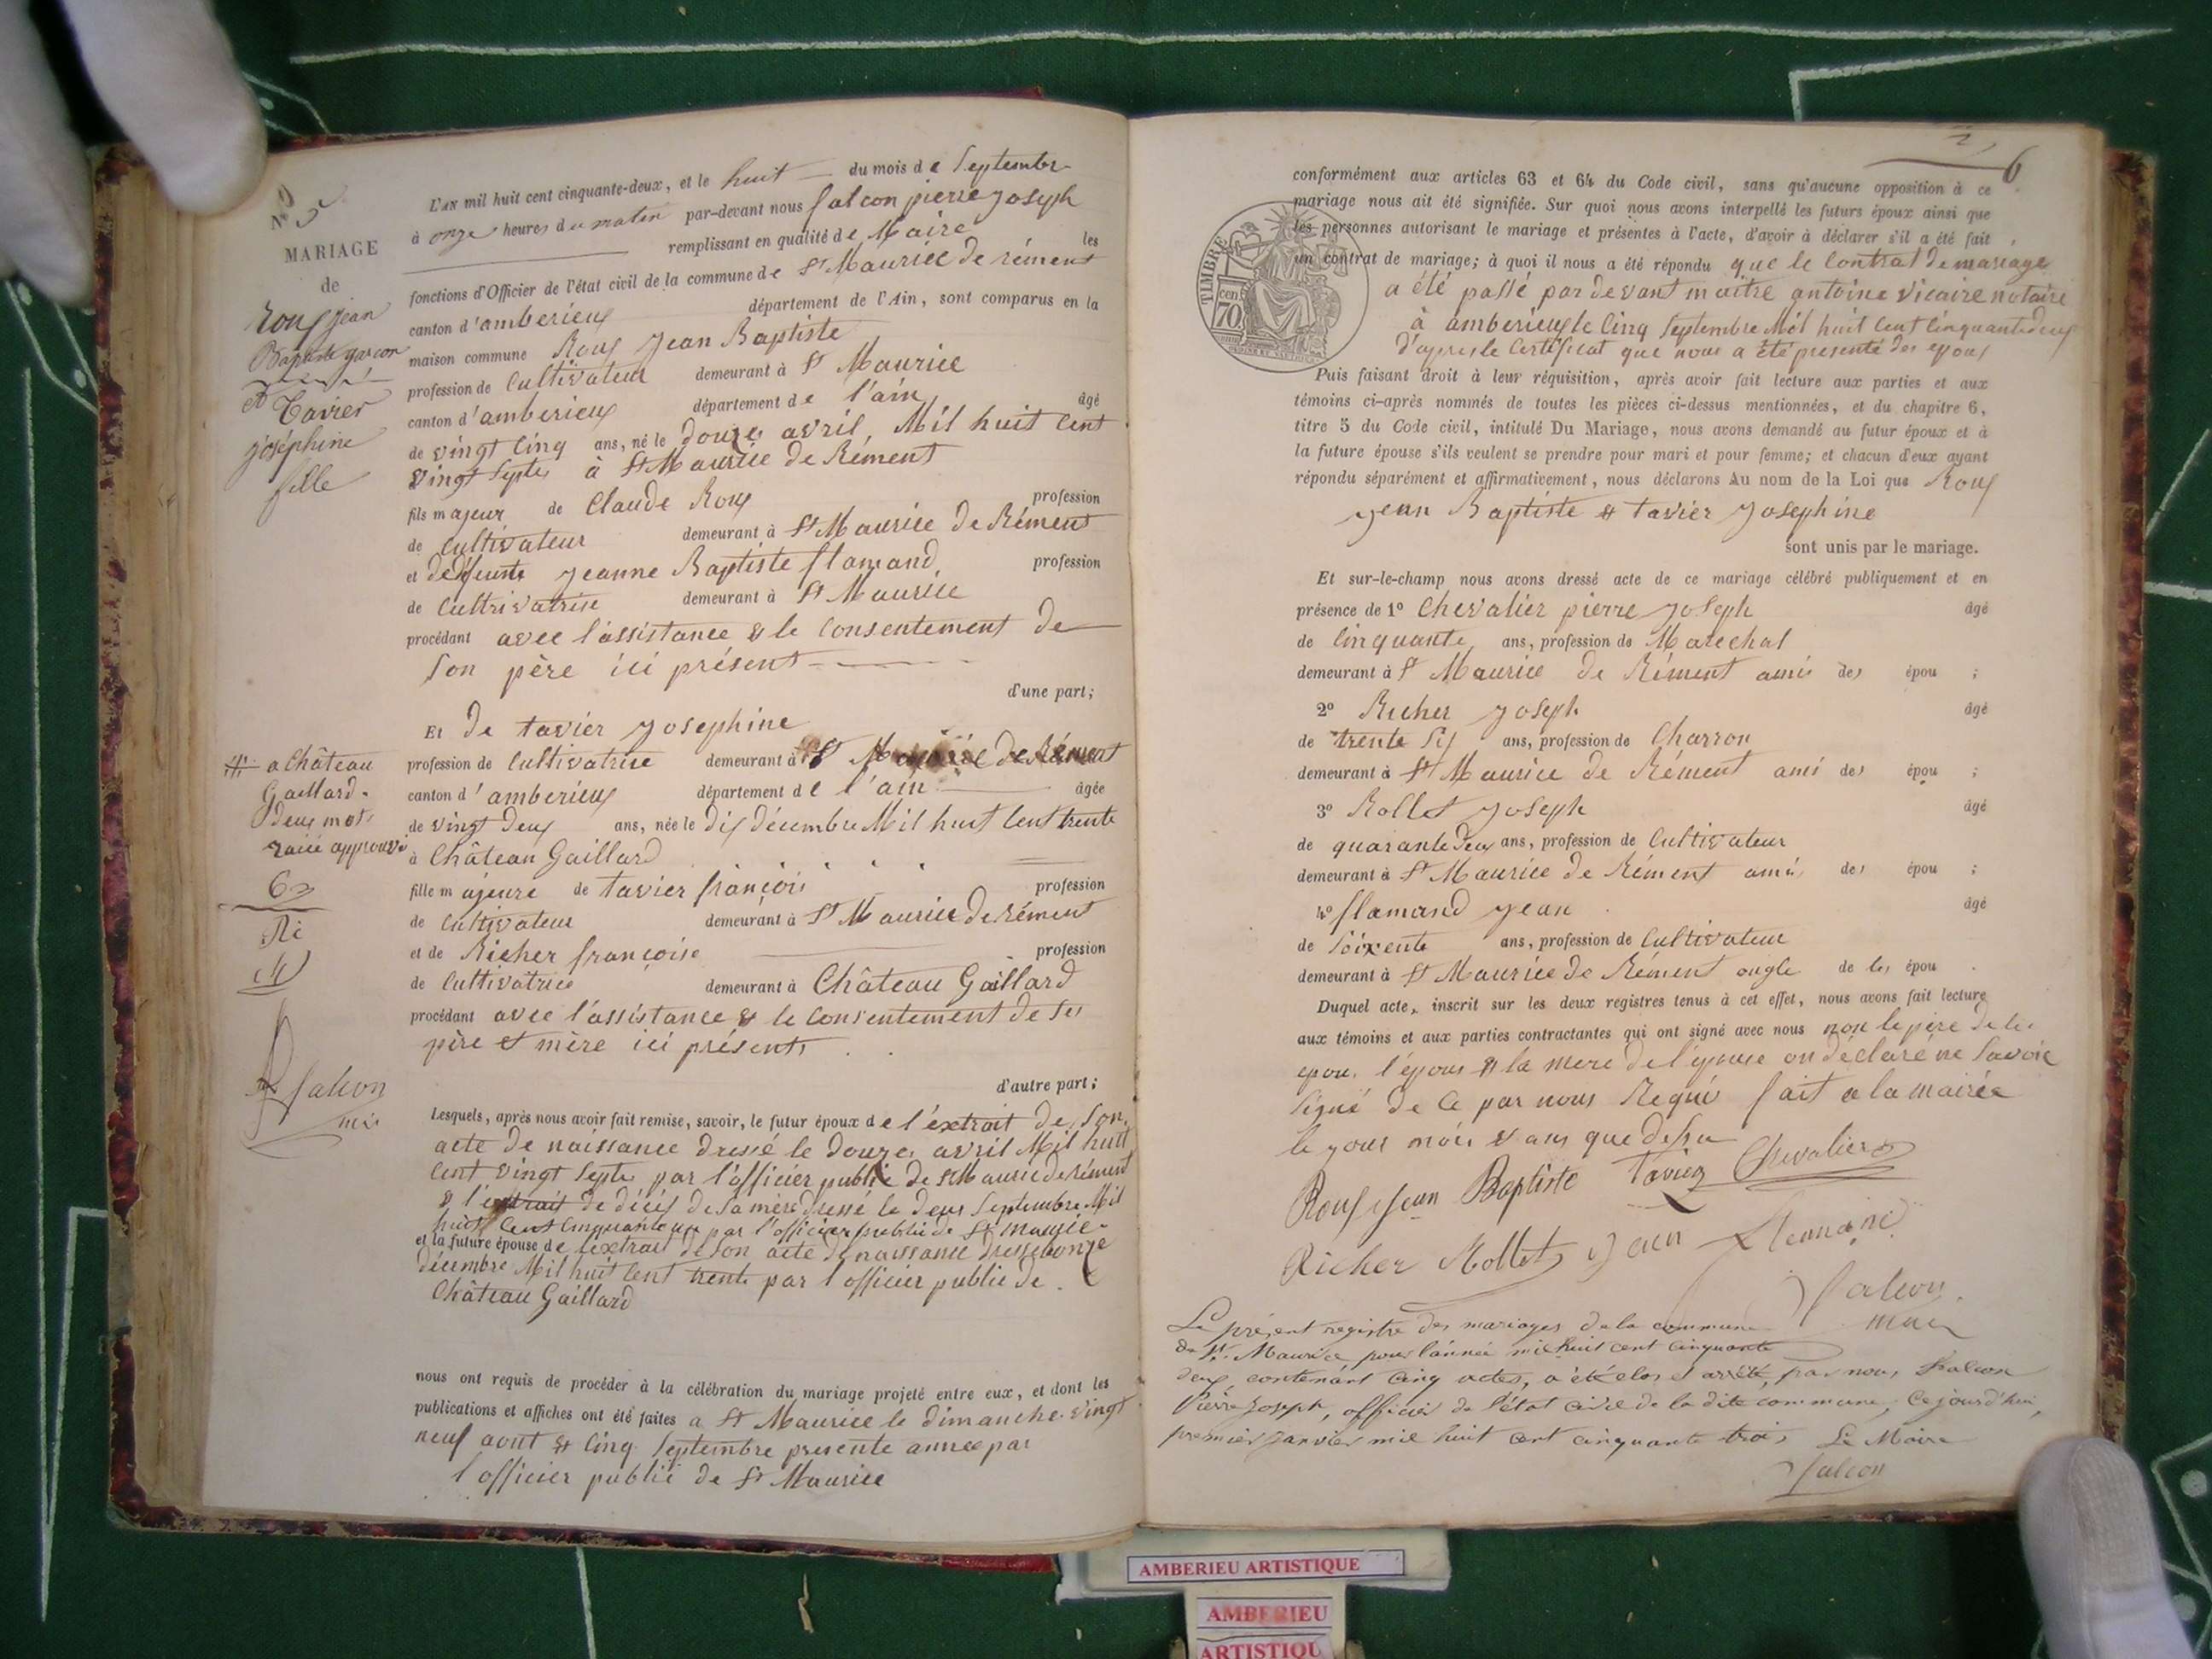 N° 5
MARIAGE
de
Roux Jean
Baptiste garçon
et Tavier
joséphine
fille
L'AN mil huit cent cinquante-deux, et le huit du mois de Septembre
à onze heures du matin par-devant nous falcon pierre Joseph
remplissant en qualité de Maire les
fonctions d'Officier de l'état civil de la commune de St Maurice de rément
canton d'amberieux département de l'Ain, sont comparus en la
maison commune Roux Jean Baptiste
profession de Cultivateur demeurant à St Maurice
canton d'amberieux département de l'ain, âgé
de vingt Cinq ans, né le douze avril, Mil huit Cent
vingt Septe à St Maurice de Rément
fils majeur de Claude Roux profession
de Cultivateur demeurant à St Maurice De Rément
et de defunte Jeanne Baptiste flamand, profession
de Cultrivatrise demeurant à St Maurice
procédant avec l'assistance & le Consentement de
Son père ici présent
d'une part;
Et De tavier Josephine
profession de Cultivatrise demeurant à St Maurice De Rément
canton d'amberieux département de l'ain âgée
de vingt Deux ans, née le Dix décembre Mil huit Cent trente
à Château Gaillard
fille majeure de tavier françois profession
de Cultivateur demeurant à St Maurice De Rément
et de Richer françoise profession
de Cultivatrice demeurant à Château Gaillard
procédant avec l'assistance & le Consentement de Ses
père et mère ici présents
d'autre part;
# a Château
Gaillard.
deux mots
raiié approuvé
falcon
Lesquels, après nous avoir fait remise, savoir, le futur époux de l'éxtrait De Son
acte De naissance Dressé le Douze avril Mil huit
Cent vingt Septe par l'officier public De St Maurice De rément
& l'extrait de décés De Sa mère Dressé le Deux Septembre Mil
huit Cent Cinquante un par l'officier public de St Maurice
et la future épouse de l'extrait De Son acte De naissance Dressé onze
décembre Mil huit Cent trente par l'officier public De
Château Gaillard
nous ont requis de procéder à la célébration du mariage projeté entre eux, et dont les
publications et affiches ont été faites a St Maurice le dimanche vingt
neuf aout & Cinq Septembre presente annee par
l'officier public De St Maurice
6
conformément aux articles 63 et 64 du Code civil, sans qu'aucune opposition à ce
mariage nous ait été signifiée. Sur quoi nous avons interpellé les futurs époux ainsi que
les personnes autorisant le mariage et présentes à l'acte, d'avoir à déclarer s'il a été fait
un contrat de mariage; à quoi il nous a été répondu que le Contrat De mariage
a été passé par Devant maitre antoine vicaire notaire
à amberieux le Cinq Septembre Mil huit Cent Cinquante deux
D'apres le Certificat que nous a été presenté Des epoux
TIMBRE
70
cent
Puis faisant droit à leur réquisition, après avoir fait lecture aux parties et aux
témoins ci-après nommés de toutes les pièces ci-dessus mentionnées, et du chapitre 6,
titre 5 du Code civil, intitulé Du Mariage, nous avons demandé au futur époux et à
la future épouse s'ils veulent se prendre pour mari et pour femme; et chacun d'eux ayant
répondu séparément et affirmativement, nous déclarons Au nom de la Loi que Roux
Jean Baptiste & tavier Josephine
sont unis par le mariage.
Et sur-le-champ nous avons dressé acte de ce mariage célébré publiquement et en
présence de 1° Chevalier pierre Joseph âgé
de Cinquante ans, profession de Marechal
demeurant à St Maurice De Rément amis des épou ;
2° Richer Joseph âgé
de trente Six ans, profession de Charron
demeurant à St Maurice de Rément ami des épou ;
3° Rollet Joseph âgé
de quarante Deux ans, profession de Cultivateur
demeurant à St Maurice De Rément amis des épou ;
4° flamand Jean âgé
de Soixente ans, profession de Cultivateur
demeurant à St Maurice De Rément ongle de les épou
Duquel acte, inscrit sur les deux registres tenus à cet effet, nous avons fait lecture
aux témoins et aux parties contractantes qui ont signé avec nous non le père De les
epou. l'épous & la mere De l'épouse on Déclaré ne Savoir
Signé De Ce par nous Requi fait a la mairée
le Jour mois & ans que Dessu
Roux Jean Baptiste Tavier Chevalier
Richer Rollet Jean Flamand
falcon
maire
Le présent registre des mariages de la commune
de St Maurice pour l'année mil huit cent cinquante
deux, contenant cinq actes, a été clos et arrêté, par nous Falcon
Pierre Joseph, officier de l'état civil de la dite commune, Ce jourd'hui,
premier Janvier mil huit cent cinquante trois Le Maire
falcon
AMBERIEU ARTISTIQUE
AMBERIEU
ARTISTIQU